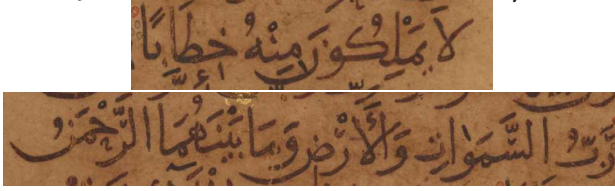 لَا يَمْلِكُونَ مِنْهُ خِطَابًا
رَّبُّ السَّمَوَاتِ وَالْأَرْضِ وَمَا بَيْنَهُمَا الرَّحْمَنُ